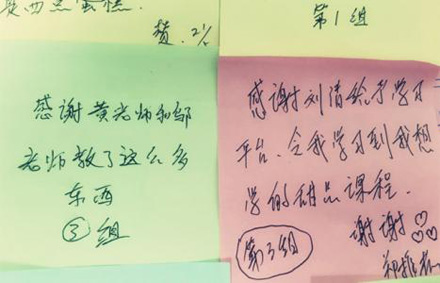 西点蛋糕.
第1组
感谢黄老师和邹
老师教了这么多
东西
③组
感谢刘清给予学习
平台、令我学习到我想
学的甜品课程.
谢谢
第3组